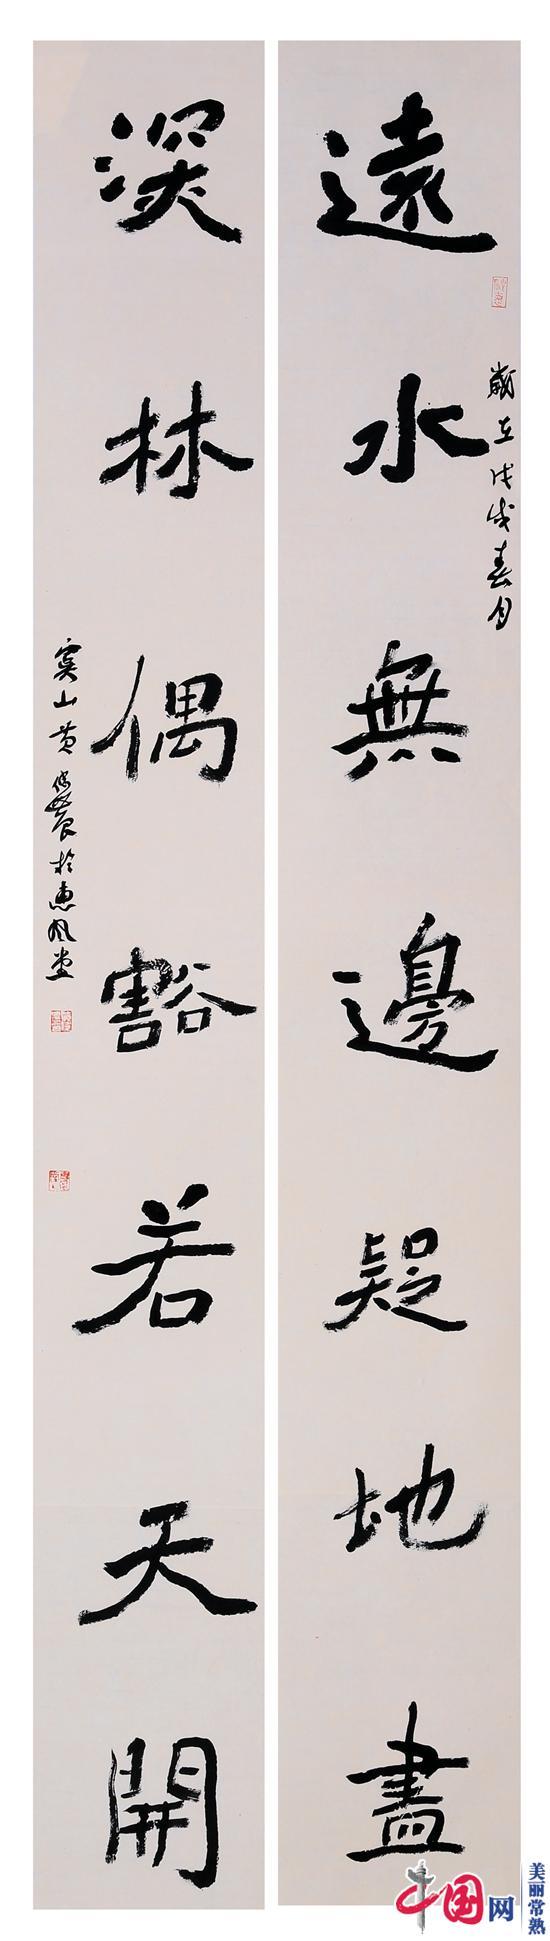 遠水無邊疑地盡
歲在戊戌春月
深林偶豁若天開
虞山黄偉農於惠風堂
中国网
美丽常熟